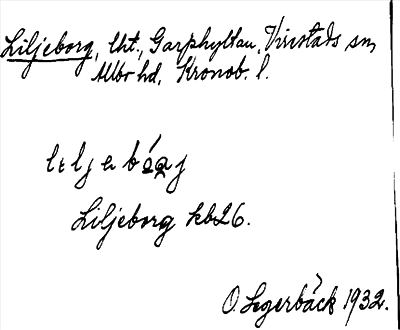 Liljeborg, lht., Garphyttan, Virestads sn,
Allbo hd, Kronob. l.
lilj e bórj
Liljeborg kb26.
O. Segerbäck 1932.